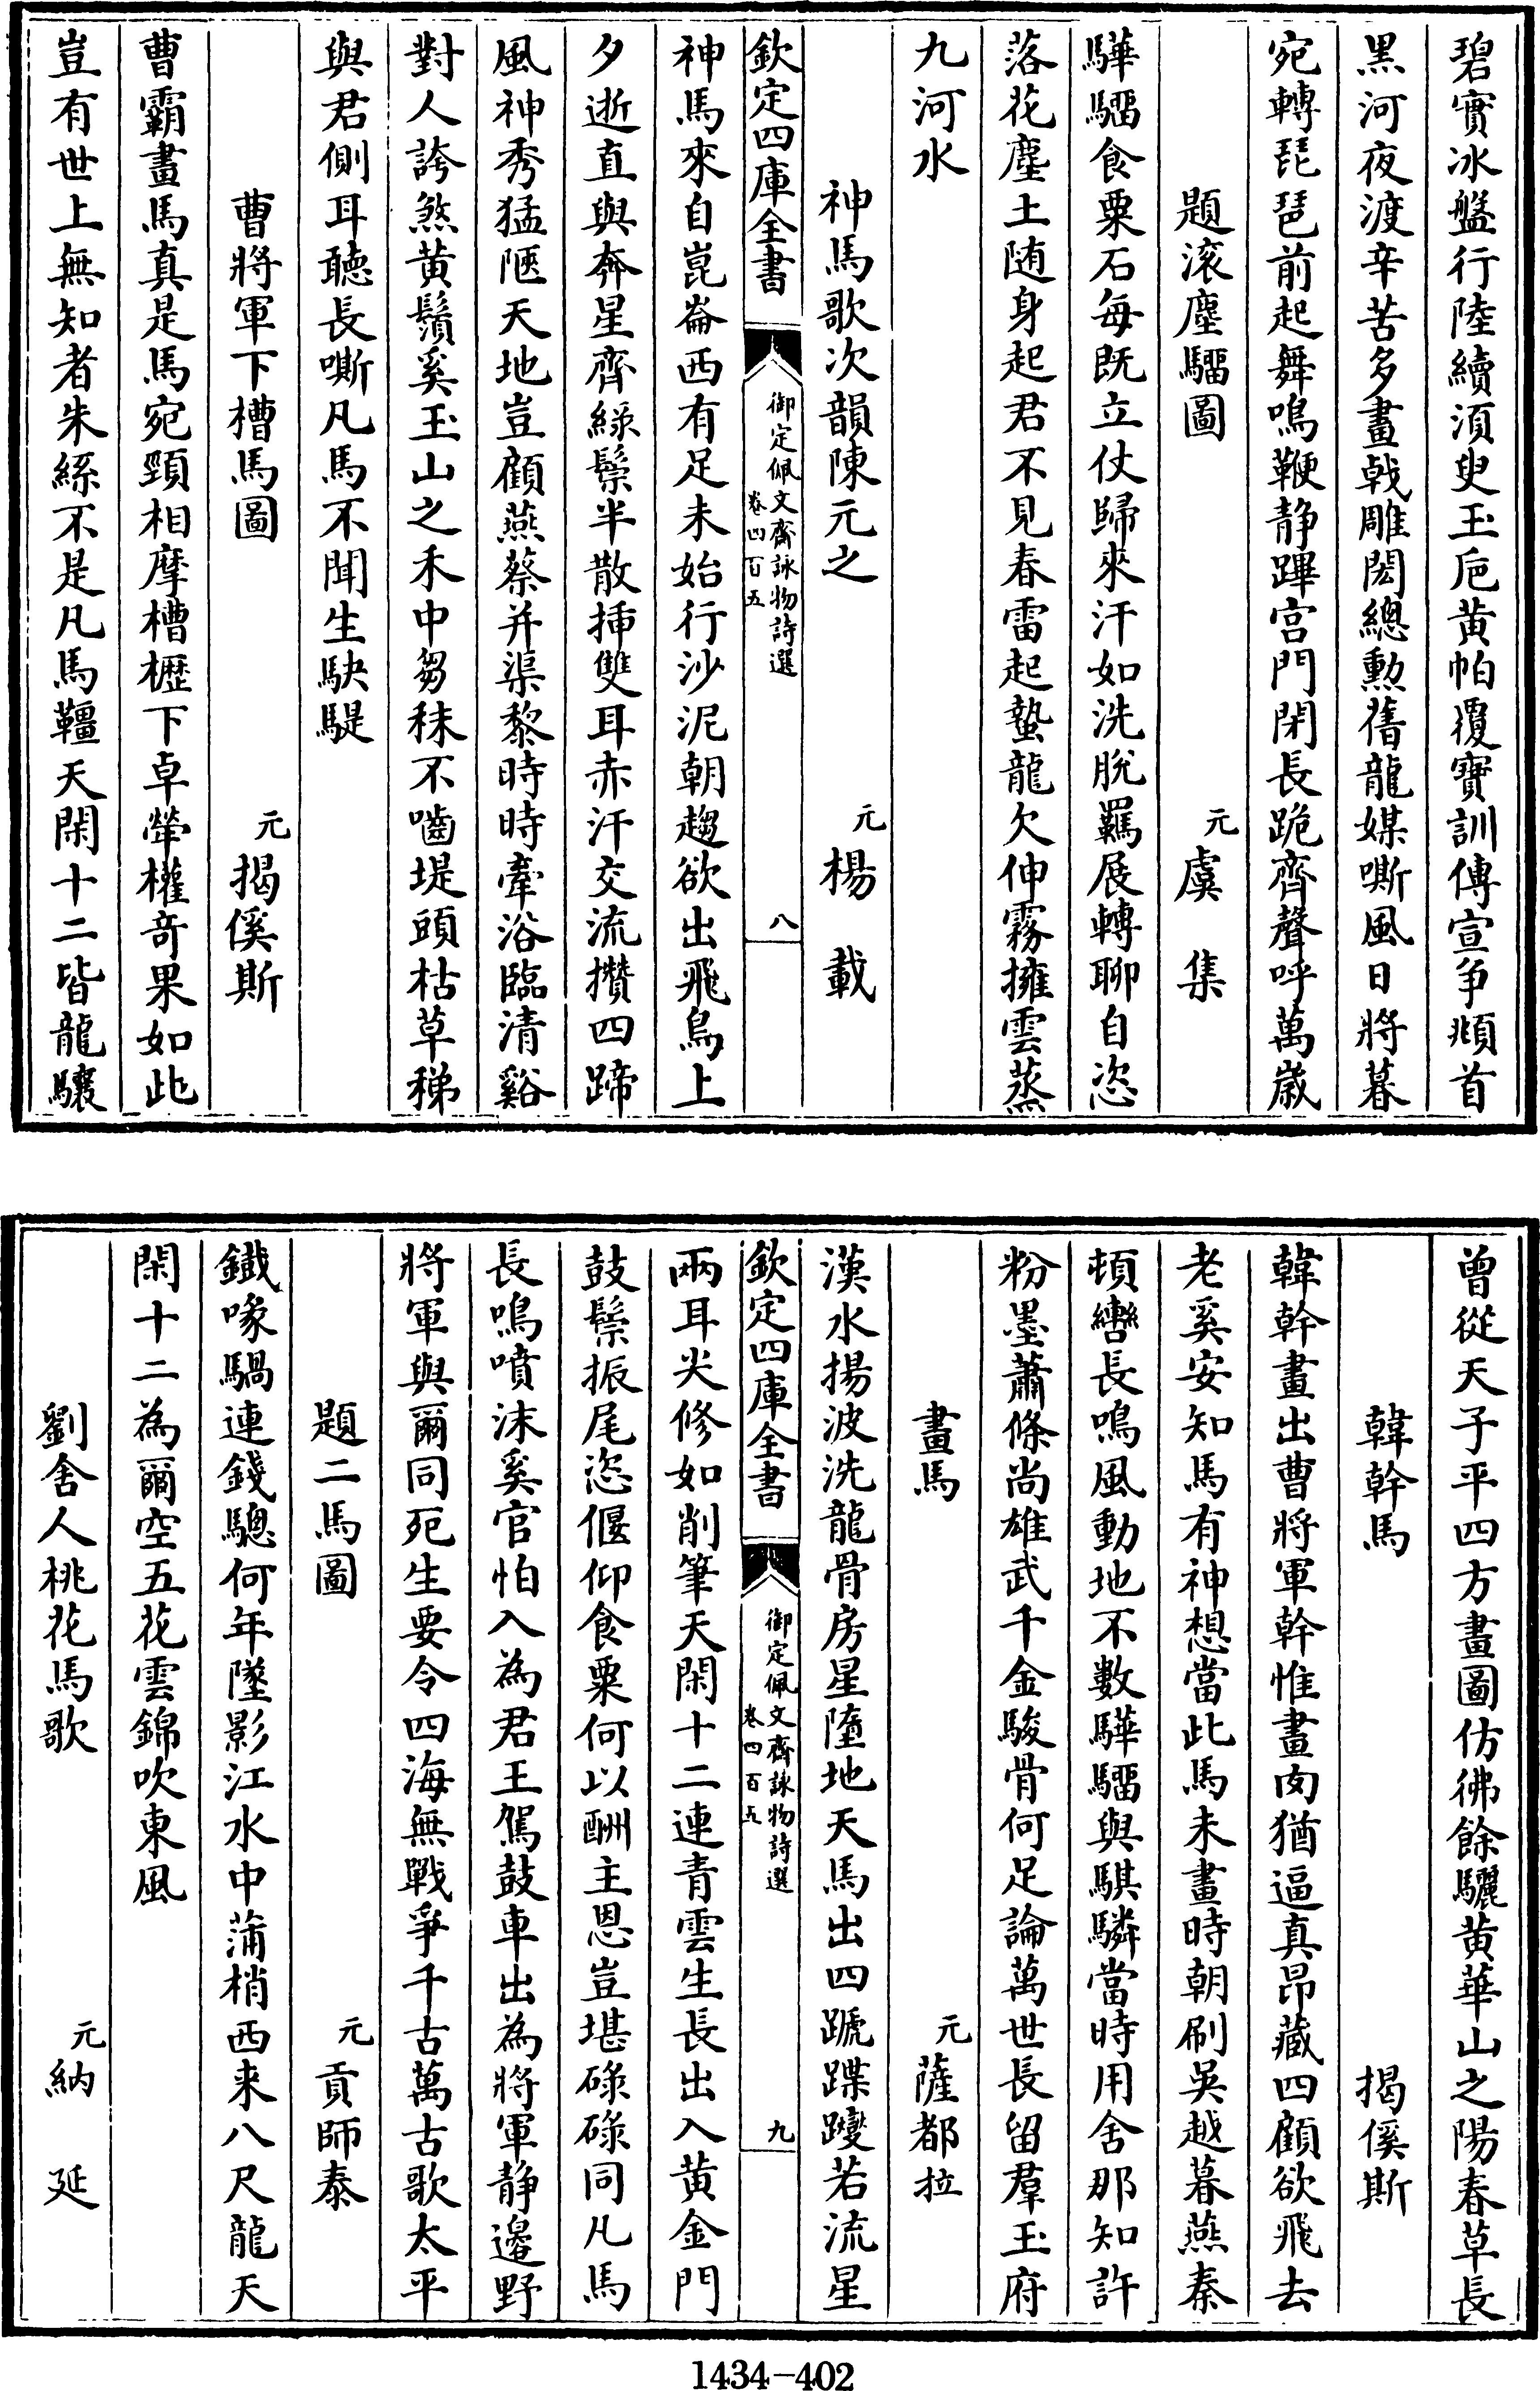 碧實冰盤行陸續湏叟玉巵黄帕覆寳訓傳宣争頫首
黒河夜渡辛苦多畫戟雕閎總勲舊龍媒嘶風日將暮
宛轉琵琶前起舞鳴鞭静蹕宫門閉長跪齊聲呼萬嵗
題滚塵騮圖 元虞集
驊騮食粟石每既立仗歸來汗如洗脫羈展轉聊自恣
落花塵土随身起君不見春雷起蟄龍欠伸霧擁雲蒸
九河水
神馬歌次韻陳元之 元楊載
欽定四庫全書 御定佩文齋詠物詩選 卷四百五 八
神馬來自崑崙西有足未始行沙泥朝趨欲出飛鳥上
夕逝直與奔星齊緑鬃半散揷雙耳赤汗交流攢四蹄
風神秀猛陋天地豈顧燕蔡并渠黎時時牽浴臨清谿
對人誇煞黄鬚奚玉山之禾中芻秣不嚙堤頭枯草稊
與君側耳聽長嘶凡馬不聞生駃騠
曹將軍下槽馬圖 元揭傒斯
曹霸畫馬真是馬宛頸相摩槽櫪下卓犖權竒果如此
豈有世上無知者朱絲不是凡馬韁天閑十二皆龍驤
曾從天子平四方畫圖仿彿餘驪黄華山之陽春草長
韓幹馬 揭傒斯
韓幹畫出曹將軍幹惟畫肉猶逼真昂藏四顧欲飛去
老奚安知馬有神想當此馬未畫時朝刷吳越暮燕秦
頓轡長鳴風動地不數驊騮與騏驎當時用舍那知許
粉墨蕭條尚雄武千金駿骨何足論萬世長留羣玉府
畫馬 元薩都拉
漢水揚波洗龍骨房星墮地天馬出四蹏蹀躞若流星
欽定四庫全書 御定佩文齋詠物詩選 卷四百五 九
兩耳尖修如削筆天閑十二連青雲生長出入黄金門
鼓鬃振尾恣偃仰食粟何以酬主恩豈堪碌碌同凡馬
長鳴噴沫奚官怕入為君王駕鼓車出為將軍静邊野
將軍與爾同死生要令四海無戰爭千古萬古歌太平
題二馬圖 元貢師泰
鐵喙騧連錢驄何年墜影江水中蒲梢西来八尺龍天
閑十二為爾空五花雲錦吹東風
劉舍人桃花馬歌 元納延
1434-402